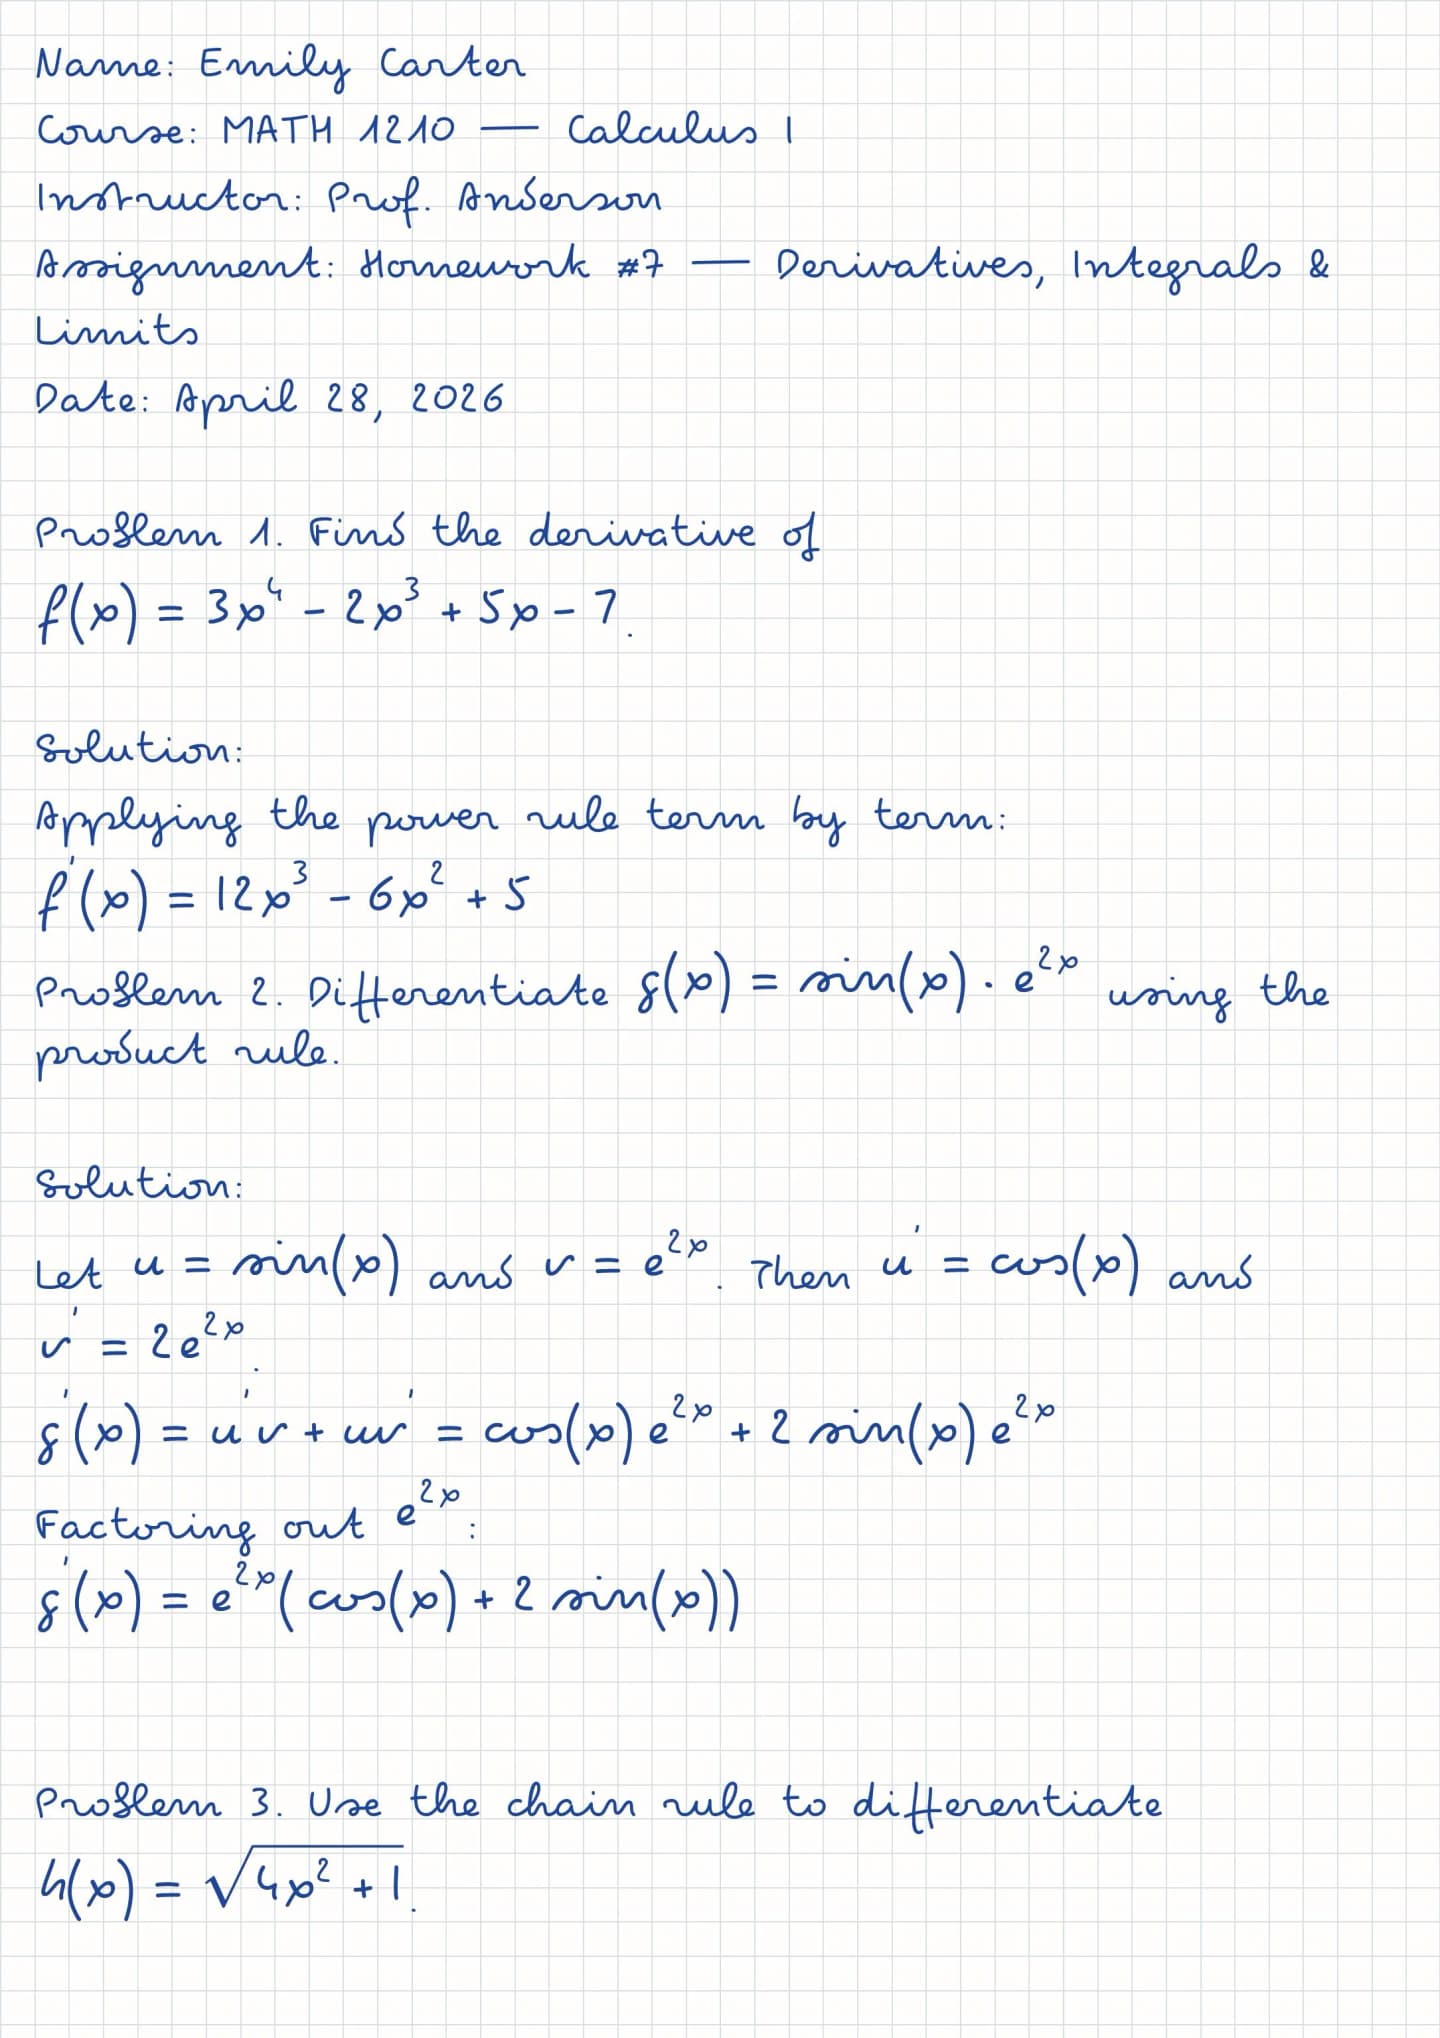 Name: Emily Carter
Course: MATH 1210 — Calculus I
Instructor: Prof. Anderson
Assignment: Homework #7 — Derivatives, Integrals &
Limits
Date: April 28, 2026
Problem 1. Find the derivative of
f(x) = 3x⁴ − 2x³ + 5x − 7.
Solution:
Applying the power rule term by term:
f′(x) = 12x³ − 6x² + 5
Problem 2. Differentiate g(x) = sin(x) · e²ˣ using the
product rule.
Solution:
Let u = sin(x) and v = e²ˣ. Then u′ = cos(x) and
v′ = 2e²ˣ.
g′(x) = u′v + uv′ = cos(x) e²ˣ + 2 sin(x) e²ˣ
Factoring out e²ˣ:
g′(x) = e²ˣ(cos(x) + 2 sin(x))
Problem 3. Use the chain rule to differentiate
h(x) = √(4x² + 1).